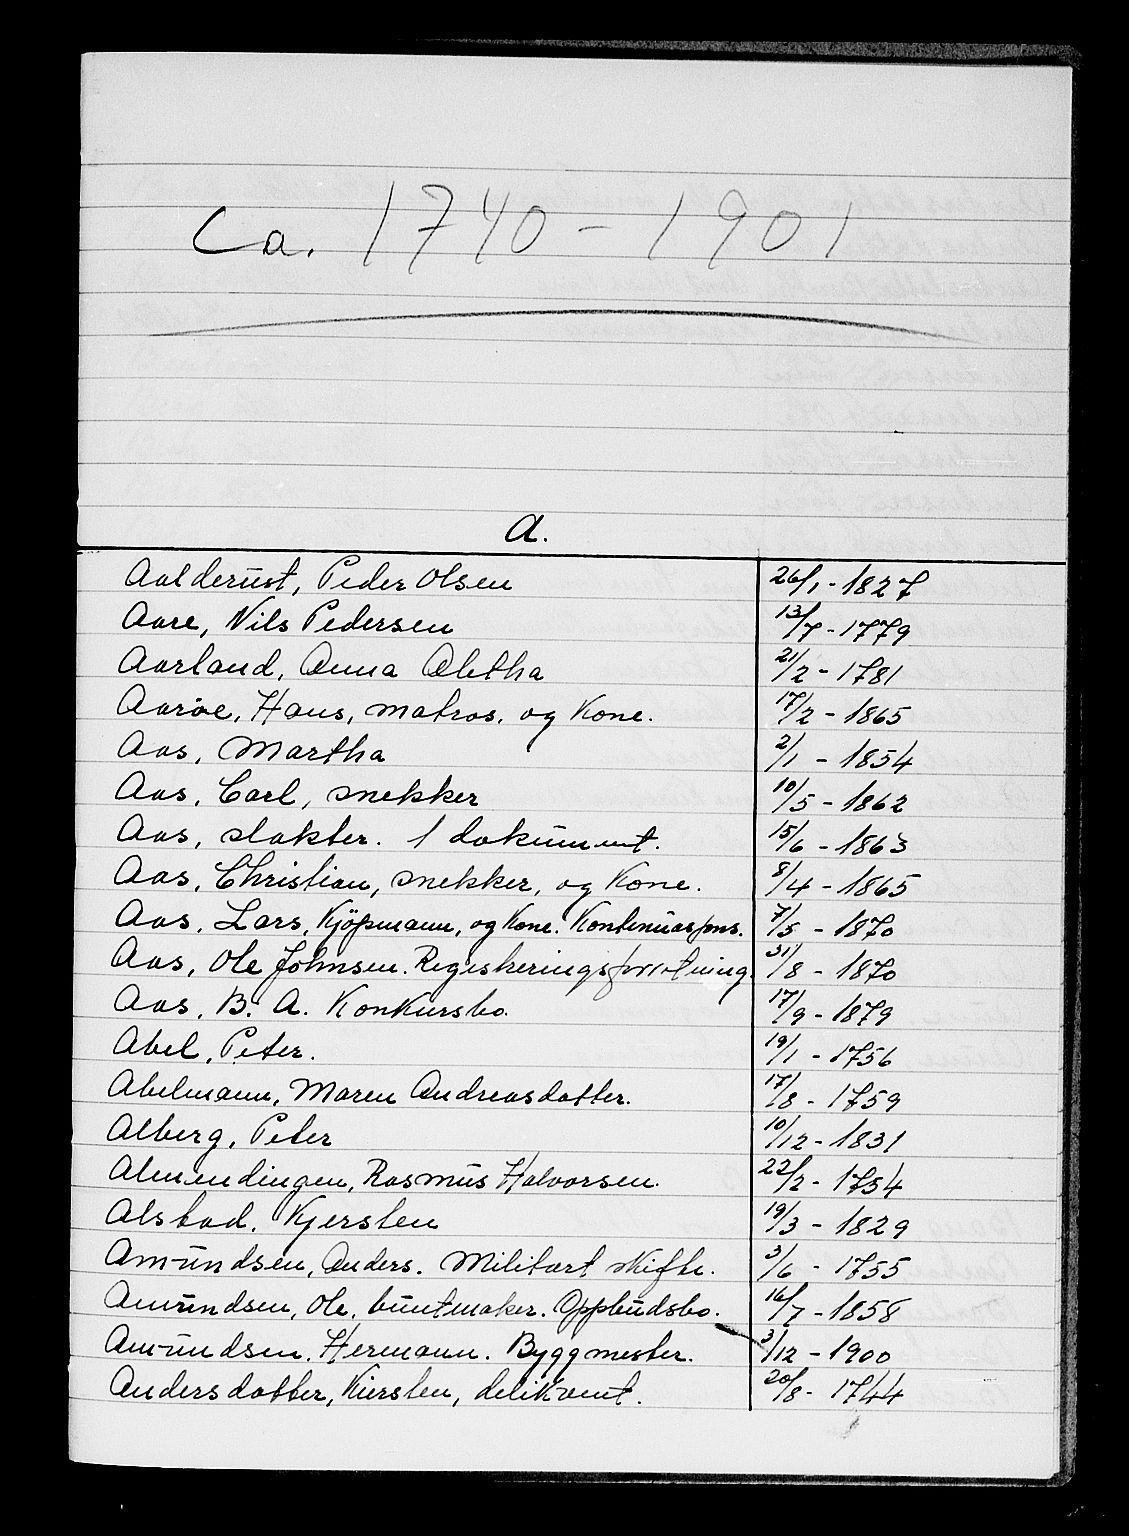 Ca. 1740 - 1901
A.
Aalderust, Peder Olsen 26/1 - 1827
Aare, Nils Pedersen 13/7 - 1779
Aarland, Anna Aletha 21/2 - 1781
Aarøe, Hans, matros. og Kone. 17/2 - 1865
Aas, Martha 2/1 - 1854
Aas, Carl, snekker 10/5 - 1862
Aas, slakter. 1 dokument. 15/6 - 1863
Aas, Christian, snekker, og Kone. 8/4 - 1865
Aas, Lars, Kjöpmann, og Kone. Kontinuasjons. 7/5 - 1870
Aas, Ole Johnsen. Registreringsforretning. 31/8 - 1870
Aas, B. A. Konkursbo. 17/9 - 1879
Abel, Peter. 19/1 - 1756
Abelmann, Maren Andreasdatter. 17/8 - 1759
Alberg, Peter 10/12 - 1831
Almendingen, Rasmus Halvorsen. 22/2 - 1754
Alstad, Kjersten 19/3 - 1829
Amundsen, Anders. Militært skifte. 3/6 - 1755
Amundsen, Ole, buntmaker. Oppbudsbo. 16/7 - 1858
Amundsen, Hermann. Byggmester. 3/12 - 1900
Andersdatter, Kirsten, delikvent. 20/8 - 1744